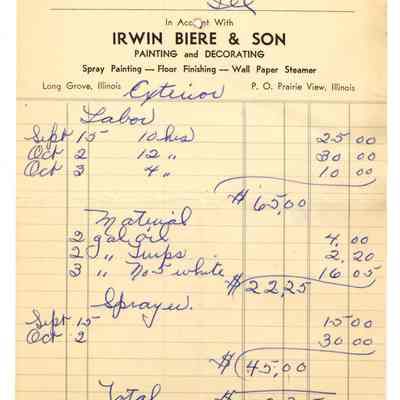 In Account With
IRWIN BIERE & SON
PAINTING and DECORATING
Spray Painting — Floor Finishing — Wall Paper Steamer
Long Grove, Illinois P. O. Prairie View, Illinois
Exterior
Labor
Sept 15 10 hrs 25 00
Oct 2 12 " 30 00
Oct 3 4 " 10 00
$ 65,00
Material
2 gal oil 4.00
2 " Turps. 2,20
3 " No 5 white 16 05
$ 22,25
Sprayer.
Sept 15 15 00
Oct 2 30 00
$ 45,00
Total $